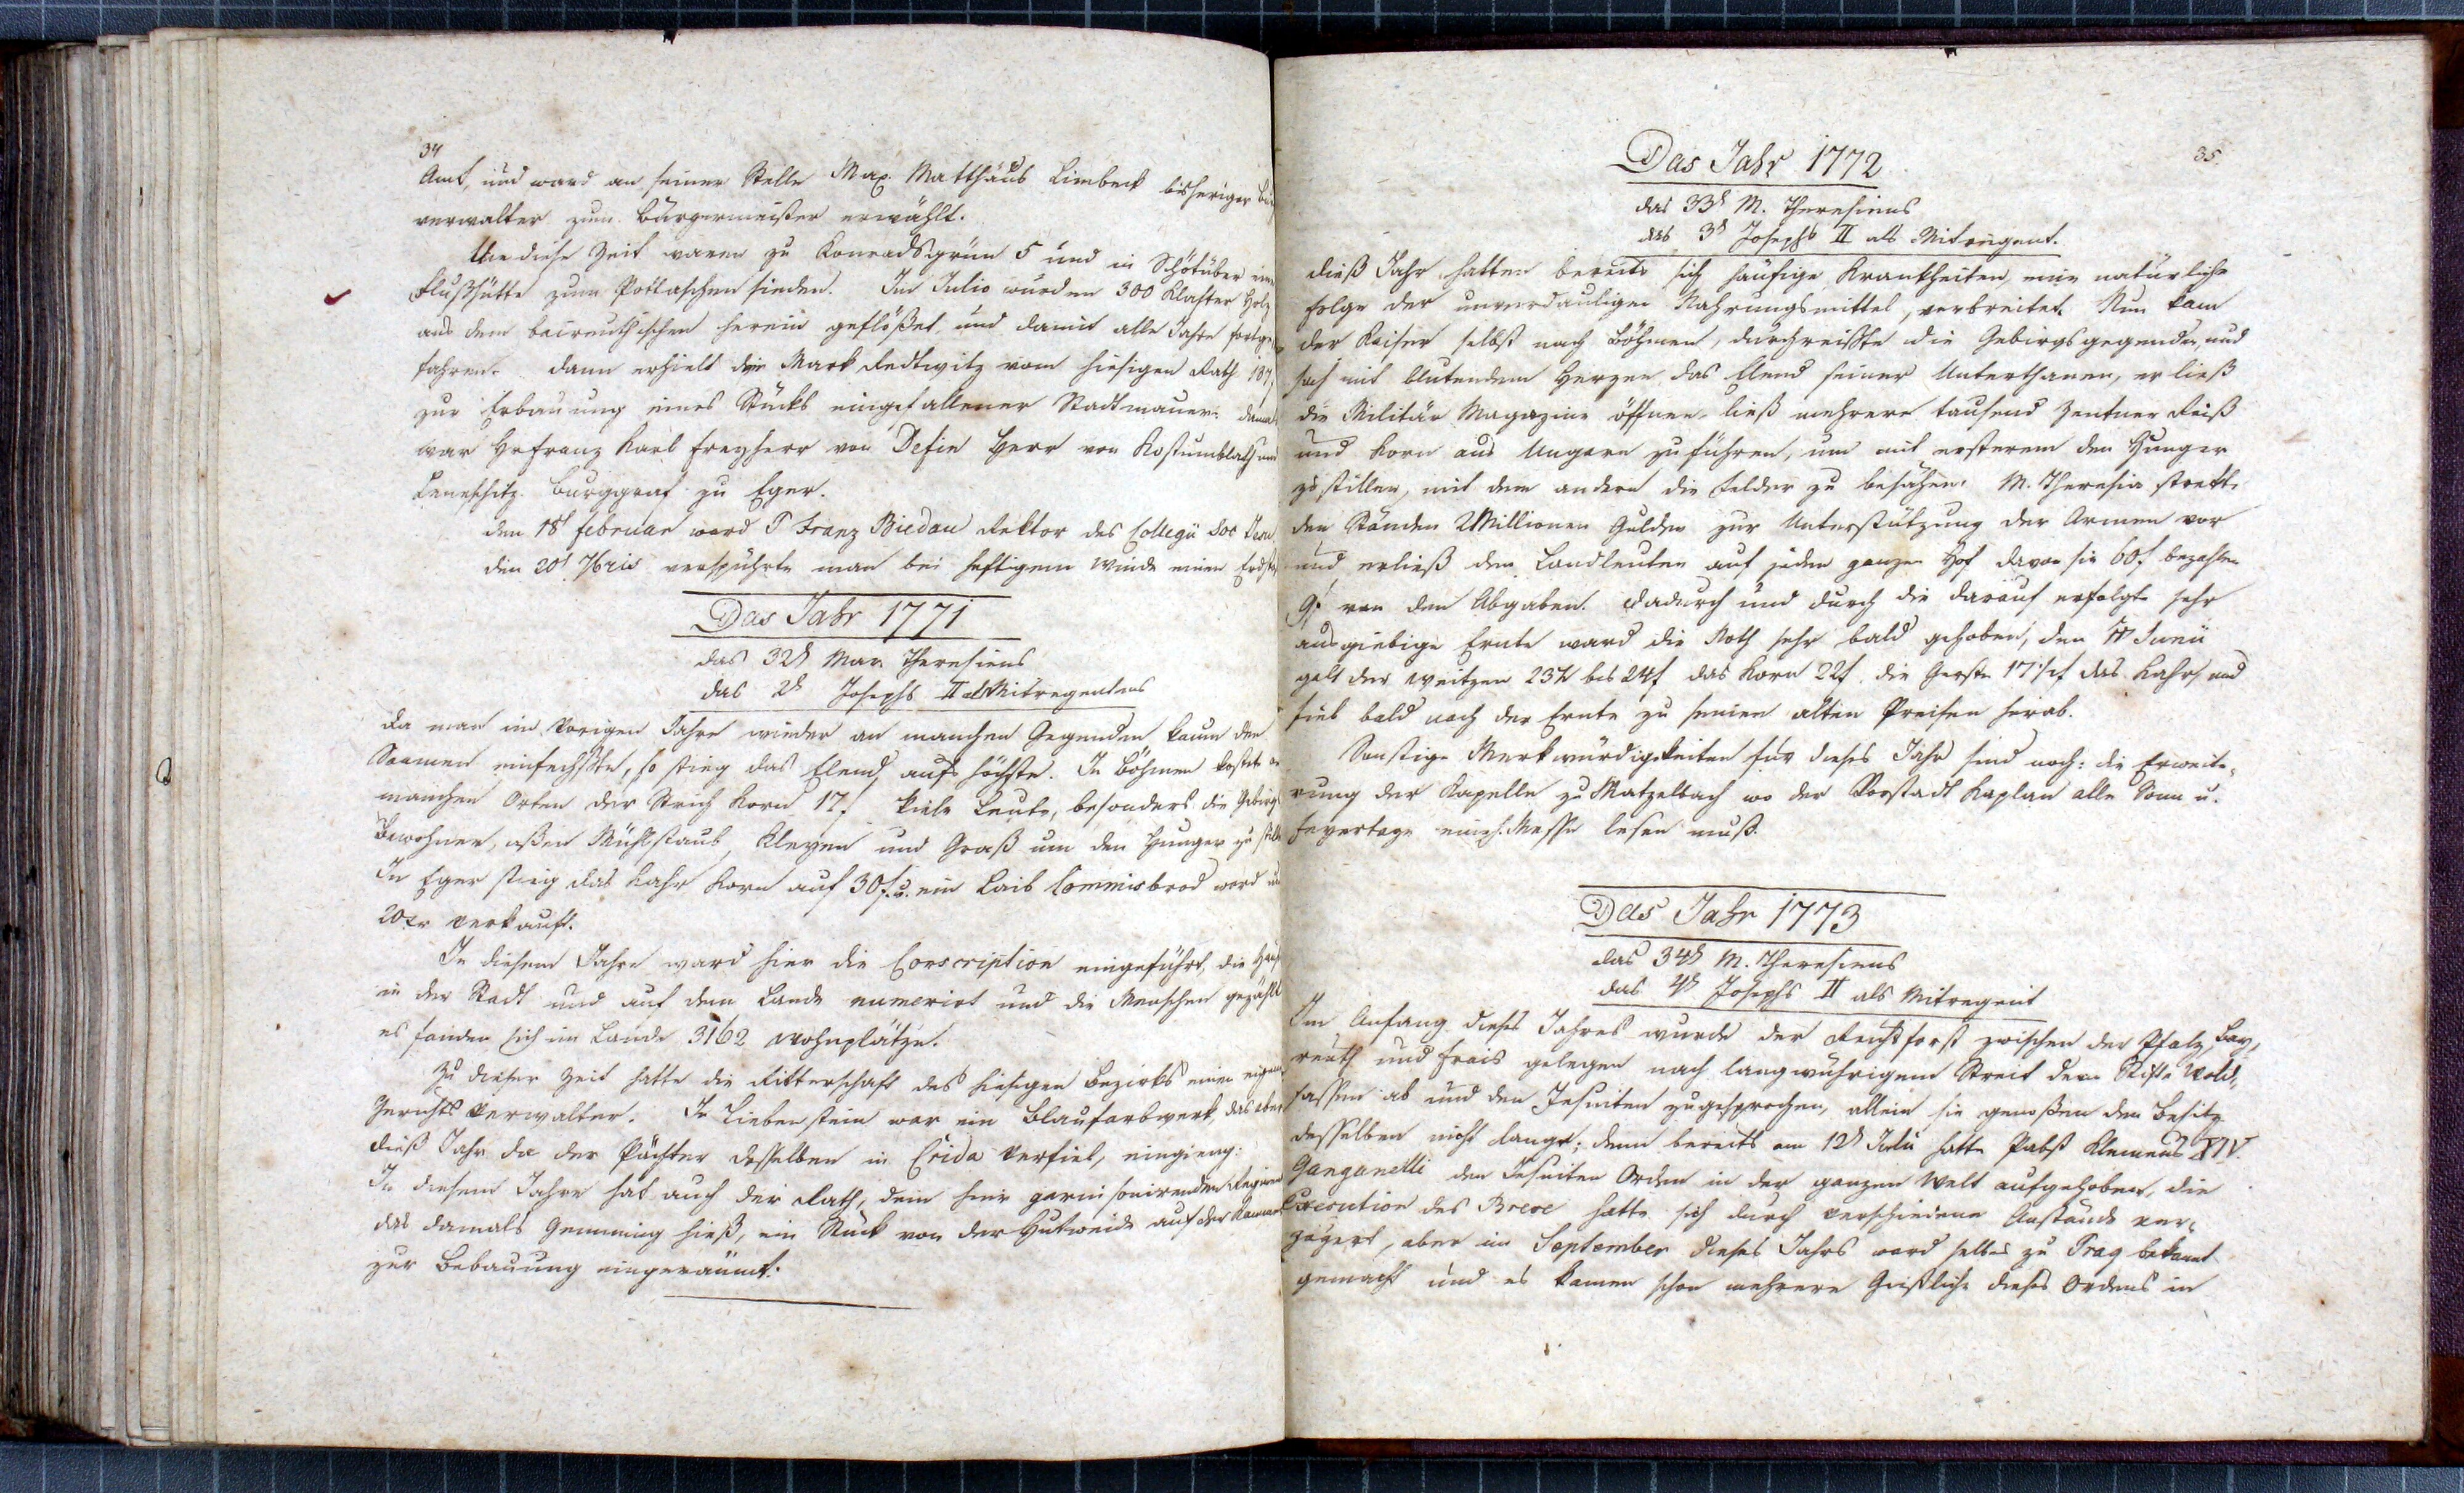 34
Amt, und ward an seiner Stelle Max. Matthäus Limbeck bisheriger
verwalter zum Bürgermeister erwählt.
Um diese Zeit waren zu Konradsgrün 5 und in Schötüber eine
Flußhütte zum Pottaschen sieden. Im Julio wurden 300 Klafter Holz
aus dem baireuthischen herein geflößet und damit alle Jahre fortge
fahren. Dann erhielt die Mark Redtwitz vom hiesigen Rath 137
zur Erbauung eines Stücks eingefallener Stadtmauer. damals
war Hr Franz Karl Freyherr von Defin Herr von Kostumblath und
Leneschitz Burggraf zu Eger.
den 18t Februar ward P Franz Biedau Rektor des Collegii Soc Jesu.
den 20t 7bris verspührte man bei heftigem Winde einen Erdstoß
Das Jahr 1771
das 32t Mar. Theresiens
das 2t Josephs II als Mitregentens
Da man im vorigen Jahre wieder an manchen Gegenden kaum den
Saamen einfechste, so stieg das Elend aufs höchste. In Böhmen kostete an
manchen Orten der Strich Korn 17f. Viele Leute, besonders die Gebirgs
Bewohner, aßen Mühlstaub, Kleyen und Graß um den Hunger zu stillen
In Eger stieg das Kahr Korn auf 30f. u. ein Laib Commisbrod ward um
20xr verkauft.
In diesem Jahre ward hier die Conscription eingeführt, die Häuser
in der Stadt und auf dem Lande numerirt und die Menschen gezählt
es fanden sich im Lande 3162 Wohnplätze.
Zu dieser Zeit hatte die Ritterschaft des hiesigen Bezirks einen eigenen
Gerichts Verwalter. In Liebenstein war ein Blaufarbwerk, das aber
dieß Jahr da der Pächter desselben in Crida verfiel, eingieng.
In diesem Jahre hat auch der Rath, dem hier garnisonirenden Regiment
das damals Gemming hieß, ein Stück von der Hutweide auf der
zur Bebauung eingeräumt.
35.
Das Jahr 1772
das 33t M. Theresiens
das 3t Josephs II als Mitregent.
Dieß Jahr hatten bereits sich häufige Krankheiten, eine natürliche
Folge der unverdaulichen Nahrungsmittel, verbreitet. Nun kam
der Kaiser selbst nach Böhmen, durchreißte die Gebirgsgegenden, und
sah mit blutendem Herzen das Elend seiner Unterthanen, er ließ
die Militär Magazine öffnen, ließ mehrere tausend Zentner Reiß
und Korn aus Ungarn zuführen, um mit ersterem den Hunger
zu stillen, mit dem andern die Felder zu besähen. M. Theresia streckte
den Ständen 2 Millionen Gulden zur Unterstützung der Armen vor
und erließ den Landleuten auf jeden ganzen Hof davon sie 60f bezahlen
9f von den Abgaben. Dadurch und durch die darauf erfolgte sehr
ausgiebige Ernte ward die Noth sehr bald gehoben, den Junii
galt der Weitzen 23½ bis 24f das Korn 22f. die Gerste 17½f das Kahr, und
fiel bald nach der Ernte zu seinen alten Preisen herab.
Sonstige Merkwürdigkeiten für dieses Jahr sind noch: die Erweite=
rung der Kapelle zu Matzelbach wo der Vorstadt Kaplan alle Sonn u.
Feyertage eine h. Messe lesen muß.
Das Jahr 1773
das 34t M. Theresiens
das 4t Josephs II als Mitregent
Im Anfang dieses Jahres wurde der Reichsforst zwischen der Pfalz, Bay=
reuth und Frais gelegen nach langwührigem Streit dem Stifte Wald=
sassen ab und den Jesuiten zugesprochen, allein sie genoßen den Besitz
desselben nicht lange; denn bereits am 12t Julii hatte Pabst Klemens XIV.
Ganganelli den Jesuiten Orden in der ganzen Welt aufgehoben, die
Execution des Breve hatte sich durch verschiedene Anstände ver=
zögert, aber im September dieses Jahrs ward selbes zu Prag bekannt
gemacht und es kamen schon mehrere Geistliche dieses Ordens in